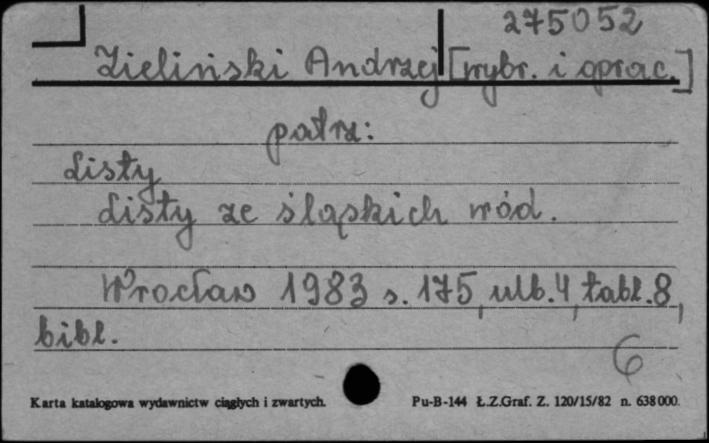 275052
Zieliński Andrzej [wybr. i oprac.]
patrz:
Listy
Listy ze śląskich wód.
Wrocław 1983 s. 175, ulb. 4, tabl. 8,
bibl.
6
Karta katalogowa wydawnictw ciągłych i zwartych. Pu-B-144 Ł.Z.Graf. Z. 120/15/82 n. 638000.